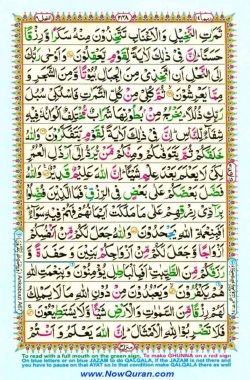 ربما ٣٢٨ النحل
ثَمَرٰتِ النَّخِيْلِ وَالْاَعْنَابِ تَتَّخِذُوْنَ مِنْهُ سَكَرًا وَّرِزْقًا
حَسَنًا اِنَّ فِيْ ذٰلِكَ لَاٰيَةً لِّقَوْمٍ يَّعْقِلُوْنَ وَاَوْحٰى رَبُّكَ
اِلَى النَّحْلِ اَنِ اتَّخِذِيْ مِنَ الْجِبَالِ بُيُوْتًا وَّمِنَ الشَّجَرِ وَ
مِمَّا يَعْرِشُوْنَ ثُمَّ كُلِيْ مِنْ كُلِّ الثَّمَرٰتِ فَاسْلُكِيْ سُبُلَ
رَبِّكِ ذُلُلًا يَخْرُجُ مِنْ بُطُوْنِهَا شَرَابٌ مُّخْتَلِفٌ اَلْوَانُهٗ فِيْهِ
شِفَآءٌ لِّلنَّاسِ اِنَّ فِيْ ذٰلِكَ لَاٰيَةً لِّقَوْمٍ يَّتَفَكَّرُوْنَ وَاللّٰهُ
خَلَقَكُمْ ثُمَّ يَتَوَفّٰىكُمْ وَمِنْكُمْ مَّنْ يُّرَدُّ اِلٰٓى اَرْذَلِ الْعُمُرِ
لِكَيْ لَا يَعْلَمَ بَعْدَ عِلْمٍ شَيْئًا اِنَّ اللّٰهَ عَلِيْمٌ قَدِيْرٌ وَاللّٰهُ
فَضَّلَ بَعْضَكُمْ عَلٰى بَعْضٍ فِي الرِّزْقِ فَمَا الَّذِيْنَ فُضِّلُوْا
بِرَآدِّيْ رِزْقِهِمْ عَلٰى مَا مَلَكَتْ اَيْمَانُهُمْ فَهُمْ فِيْهِ سَوَآءٌ
اَفَبِنِعْمَةِ اللّٰهِ يَجْحَدُوْنَ وَاللّٰهُ جَعَلَ لَكُمْ مِّنْ اَنْفُسِكُمْ
اَزْوَاجًا وَّجَعَلَ لَكُمْ مِّنْ اَزْوَاجِكُمْ بَنِيْنَ وَحَفَدَةً وَّ
رَزَقَكُمْ مِّنَ الطَّيِّبٰتِ اَفَبِالْبَاطِلِ يُؤْمِنُوْنَ وَبِنِعْمَتِ اللّٰهِ
هُمْ يَكْفُرُوْنَ وَيَعْبُدُوْنَ مِنْ دُوْنِ اللّٰهِ مَا لَا يَمْلِكُ
لَهُمْ رِزْقًا مِّنَ السَّمٰوٰتِ وَالْاَرْضِ شَيْئًا وَّلَا يَسْتَطِيْعُوْنَ
فَلَا تَضْرِبُوْا لِلّٰهِ الْاَمْثَالَ اِنَّ اللّٰهَ يَعْلَمُ وَاَنْتُمْ
To read with a full mouth on the green sign, To make GHUNNA on a red sign
On blue letters or on blue JAZAM to do QALQALA, if the JAZAM is not there and
you have to pause on that AYAT so in that condition make QALQALA there as well
www.NowQuran.com